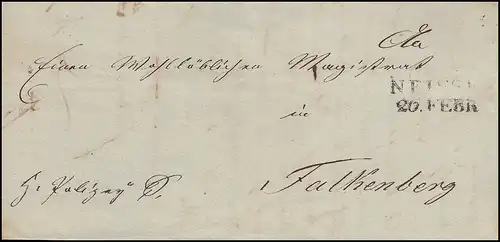 An
Einen Wohllöblichen Magistrat
NEISSE
20. FEBR
in
H. Polizey S.
Falkenberg